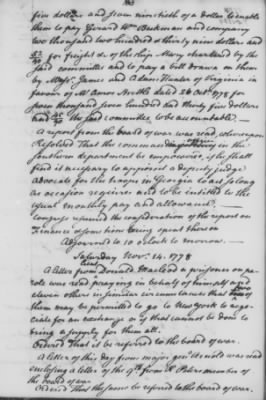 five dollars and seven ninetieth of a dollar to enable
them to pay Gerard Wm. Beekman and company
two thousand two hundred & thirty nine dollars and
53/90 for freight of the ship Mary chartered by the
said committee and to pay a bill drawn on them
by Messrs. James and Adam Hunter of Virginia in
favour of Mr. Amos Strettle dated 24 Octr. 1778 for
four thousand seven hundred and thirty five dollars
and the said committee to be accountable. —
A report from the board of war was read, whereupon
Resolved That the commanding officer in the
Southern department be empowered, if he shall
find it necessary to appoint a deputy judge
advocate for the troops in Georgia to act so long
as occasion require and to be intitled to the
usual monthly pay and allowance.
Congress resumed the consideration of the report on
Finance & some time being spent thereon
Adjourned to 10 oClock to morrow. —
Saturday Novr. 14. 1778
A letter from Donald Macleod a prisoner on pa-
role was read praying in behalf of himself and
eleven others in similar circumstances that some of
them may be permitted to go to New York to nego-
ciate for an exchange or if that cannot be done to
bring a supply for them all.
Ordered That it be referred to the board of war.
A letter of this day from major genl. Arnold was read
enclosing a letter of the 9th from R Peters member of
the board of war
Ordered That the same be referred to the board of war.